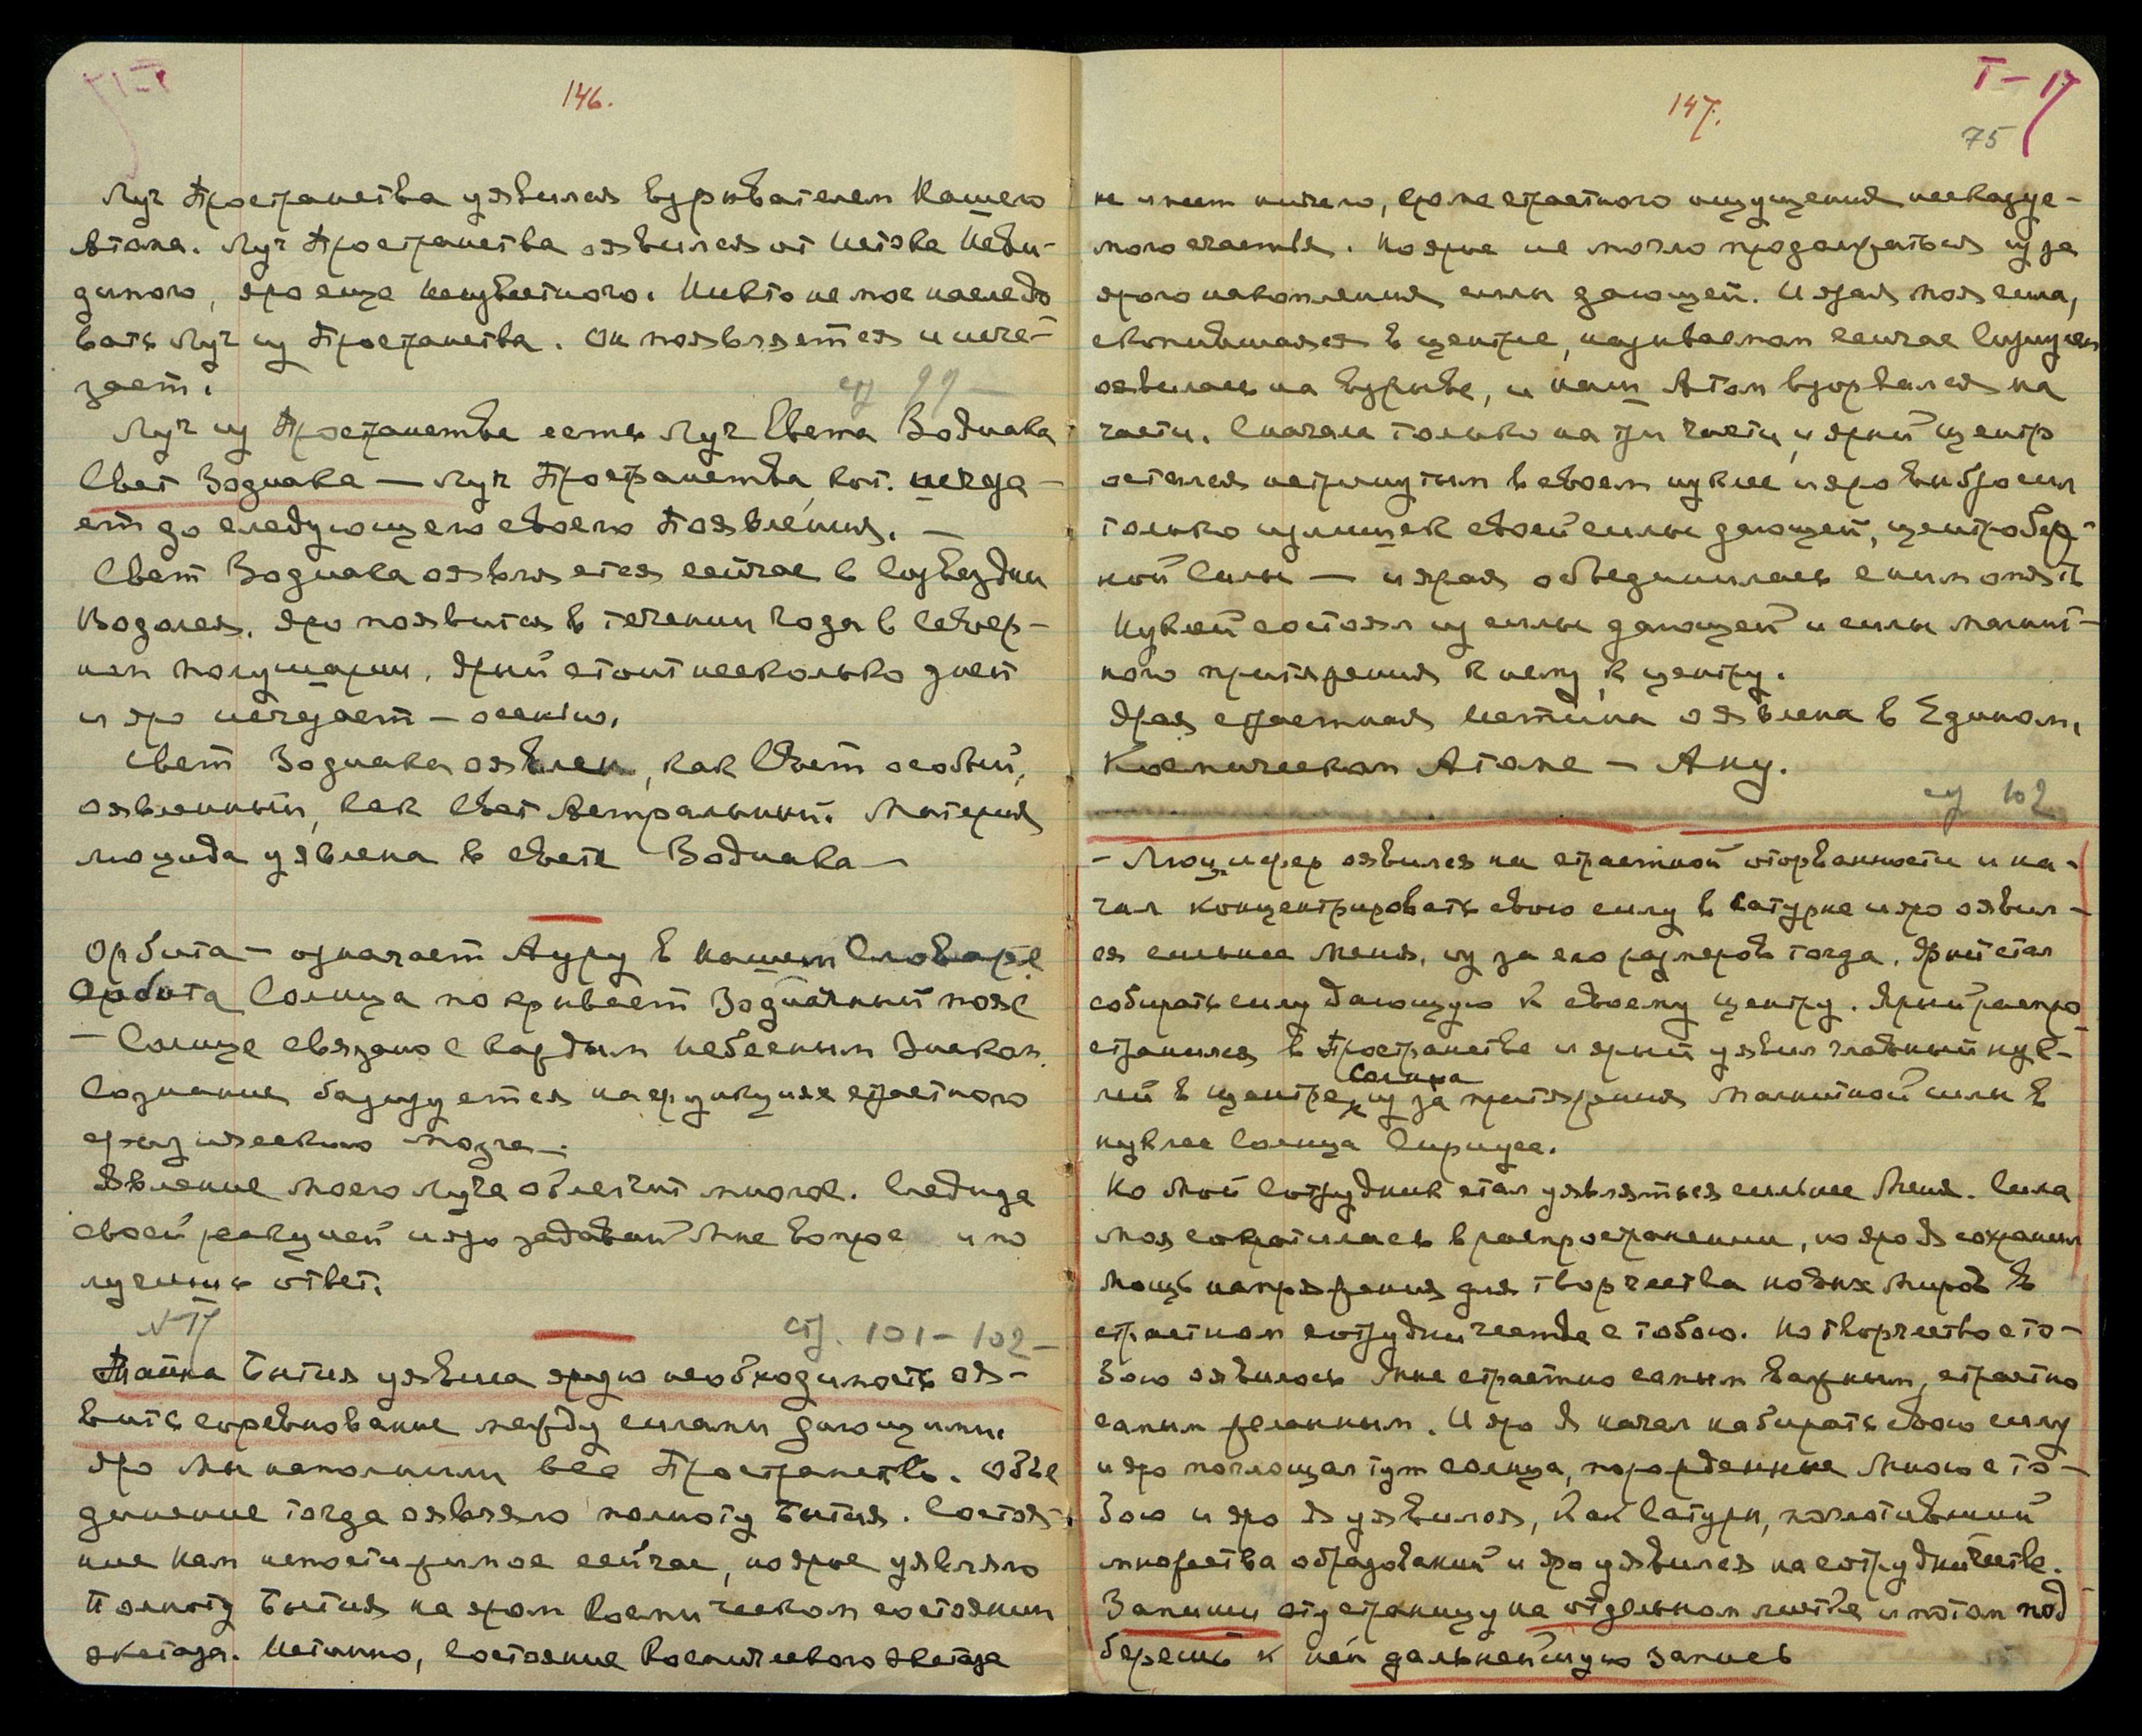 146.
Луч Пространства уявился взрывателем Нашего
Атома. Луч Пространства оявился от Истока Неви-
димого, яро еще Неизвестного. Никто не мог наследо
вать Луч из Пространства. Он появляется и исче-
зает.
стр 99 —
Луч из Пространства есть Луч Света Зодиака
Свет Зодиака — Луч Пространства, кот. исчеза-
ет до следующего своего Появления. —
Свет Зодиака оявляется сейчас в Созвездии
Водолея. Яро появится в течении года в Север-
ном полушарии. Ярый стоит несколько дней
и яро исчезает — осенью.
Свет Зодиака оявлен, как Свет особый,
оявленный, как Свет Астральный. Материя
люцида уявлена в свете Зодиака —
Орбита — означает Ауру в Нашем Словаре
Орбита Солнца покрывает Зодиачный пояс
— Солнце связано с каждым небесным Знаком.
Сознание базируется на функциях страстного
физического мозга —
Явление моего Луча облегчит многое. Следи за
своей реакцией и яро задавай Мне вопрос и по
лучишь ответ.
стр. 101 – 102 —
Тайна Бытия уявила яредую необходимость оя-
вить соревнование между силами дающими.
Яро мы наполнили все Пространство. Объе
динение тогда оявляло полноту Бытия. Состоя-
ние Нам непостижимое сейчас, но ярое уявляло
Полноту Бытия на яром Космическом состоянии
экстаза. Истинно, состояние Космического Экстаза
Т – 17
147.
75
не имеет ничего, кроме страстного ощущения несказуе-
мого счастья. Но ярое не могло продолжаться из за
ярого накопления силы дающей. И ярая моя сила,
скопившаяся в центре, называемом сейчас Сириусом
оявилась на взрыве, и наш Атом взорвался на
части. Сначала только на три части, и ярый центр
остался нетронутым в своем нуклее и яро выбросил
только излишек своей силы дающей, центробеж-
ной Силы — и ярая объединилась с ним опять
Нуклей состоял из силы дающей и силы магнит-
ного притяжения к нему, к центру.
Ярая страстная Истина оявлена в Едином,
Космическом Атоме — Ану.
стр 102
– Люцифер оявился на страстной оторванности и на-
чал концентрировать свою силу в Сатурне и яро оявил-
ся сильнее меня, из за его размеров тогда. Ярый стал
собирать силу дающую к своему центру. Ярый распро
странился в Пространстве и ярый уявил главный нук-
Солнца
лей в центре х из за притяжения магнитной силы в
нуклее Солнца Сириусе.
Но Мой Сотрудник стал уявляться сильнее Меня. Сила
Моя сократилась в распространении, но яро Я сохранил
Мощь напряжения для творчества новых Миров в
страстном сотрудничестве с тобою. Но творчество с то-
бою оявилось Мне страстно самым важным, страстно
самым желанным. И яро Я начал набирать свою силу
и яро поглощал тут солнца, порожденные Мною с то-
бою и яро Я уявился, как Сатурн, поглотивший
множества образований и яро уявился на сотрудничестве.
Запиши эту страницу на отдельном листке и потом под
берешь к ней дальнейшую запись